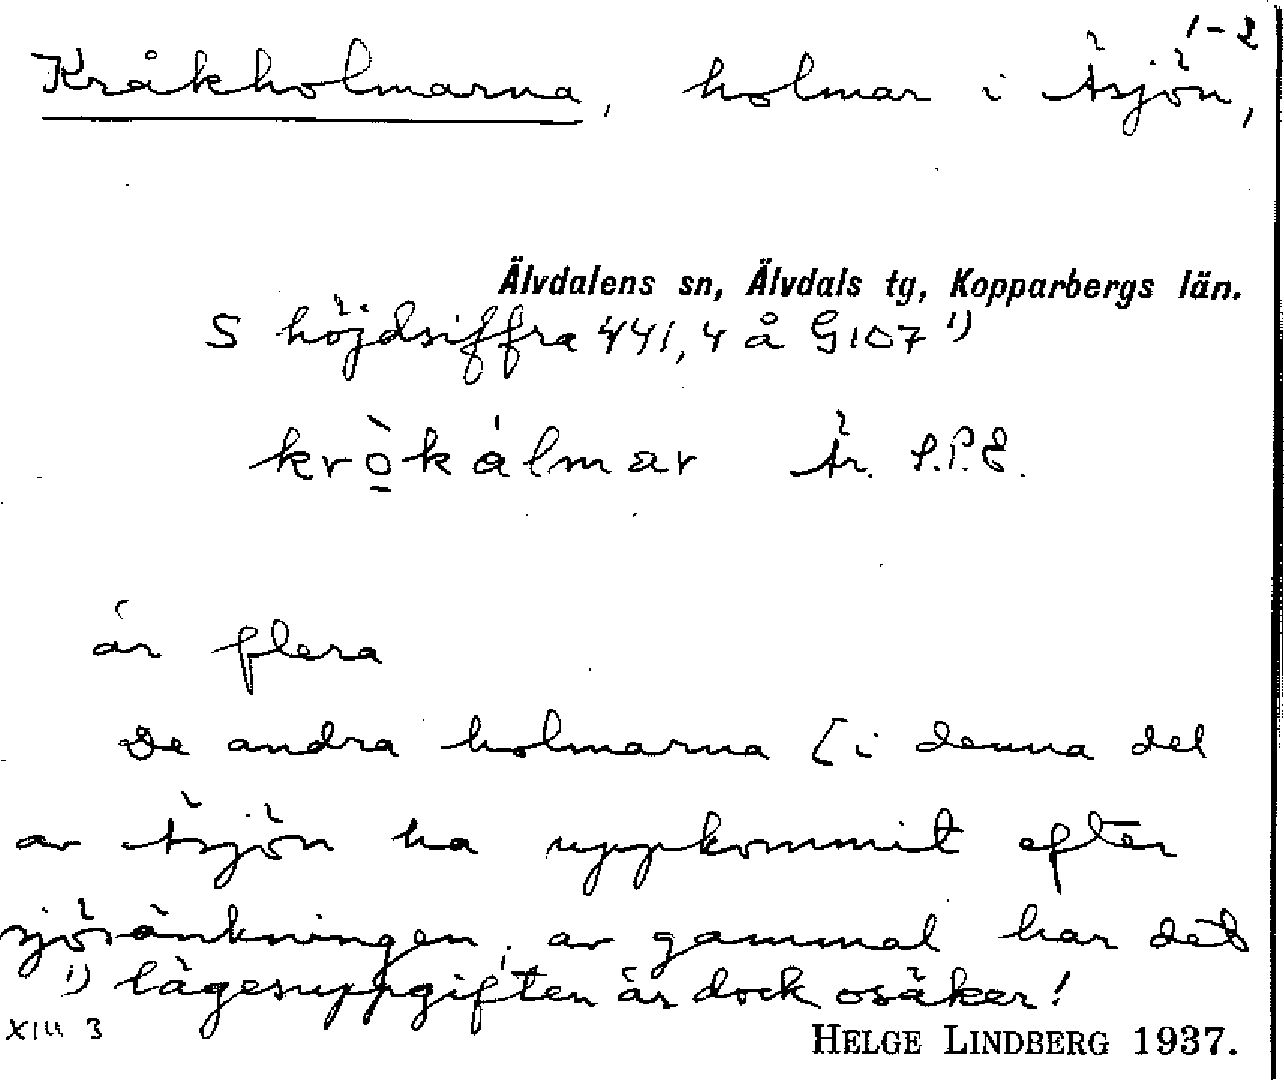 1-2
Kråkholmarna, holmar i Äsjön,
Älvdalens sn, Älvdals tg, Kopparbergs län.
S höjdsiffra 441,4 å G107 1)
kròkálmar Är. S.P.E.
är flera
De andra holmarna [i denna del
av Äsjön ha uppkommit efter
sjösänkningen, av gammal har det
1) lägesuppgiften är dock osäker!
XIII 3
HELGE LINDBERG 1937.